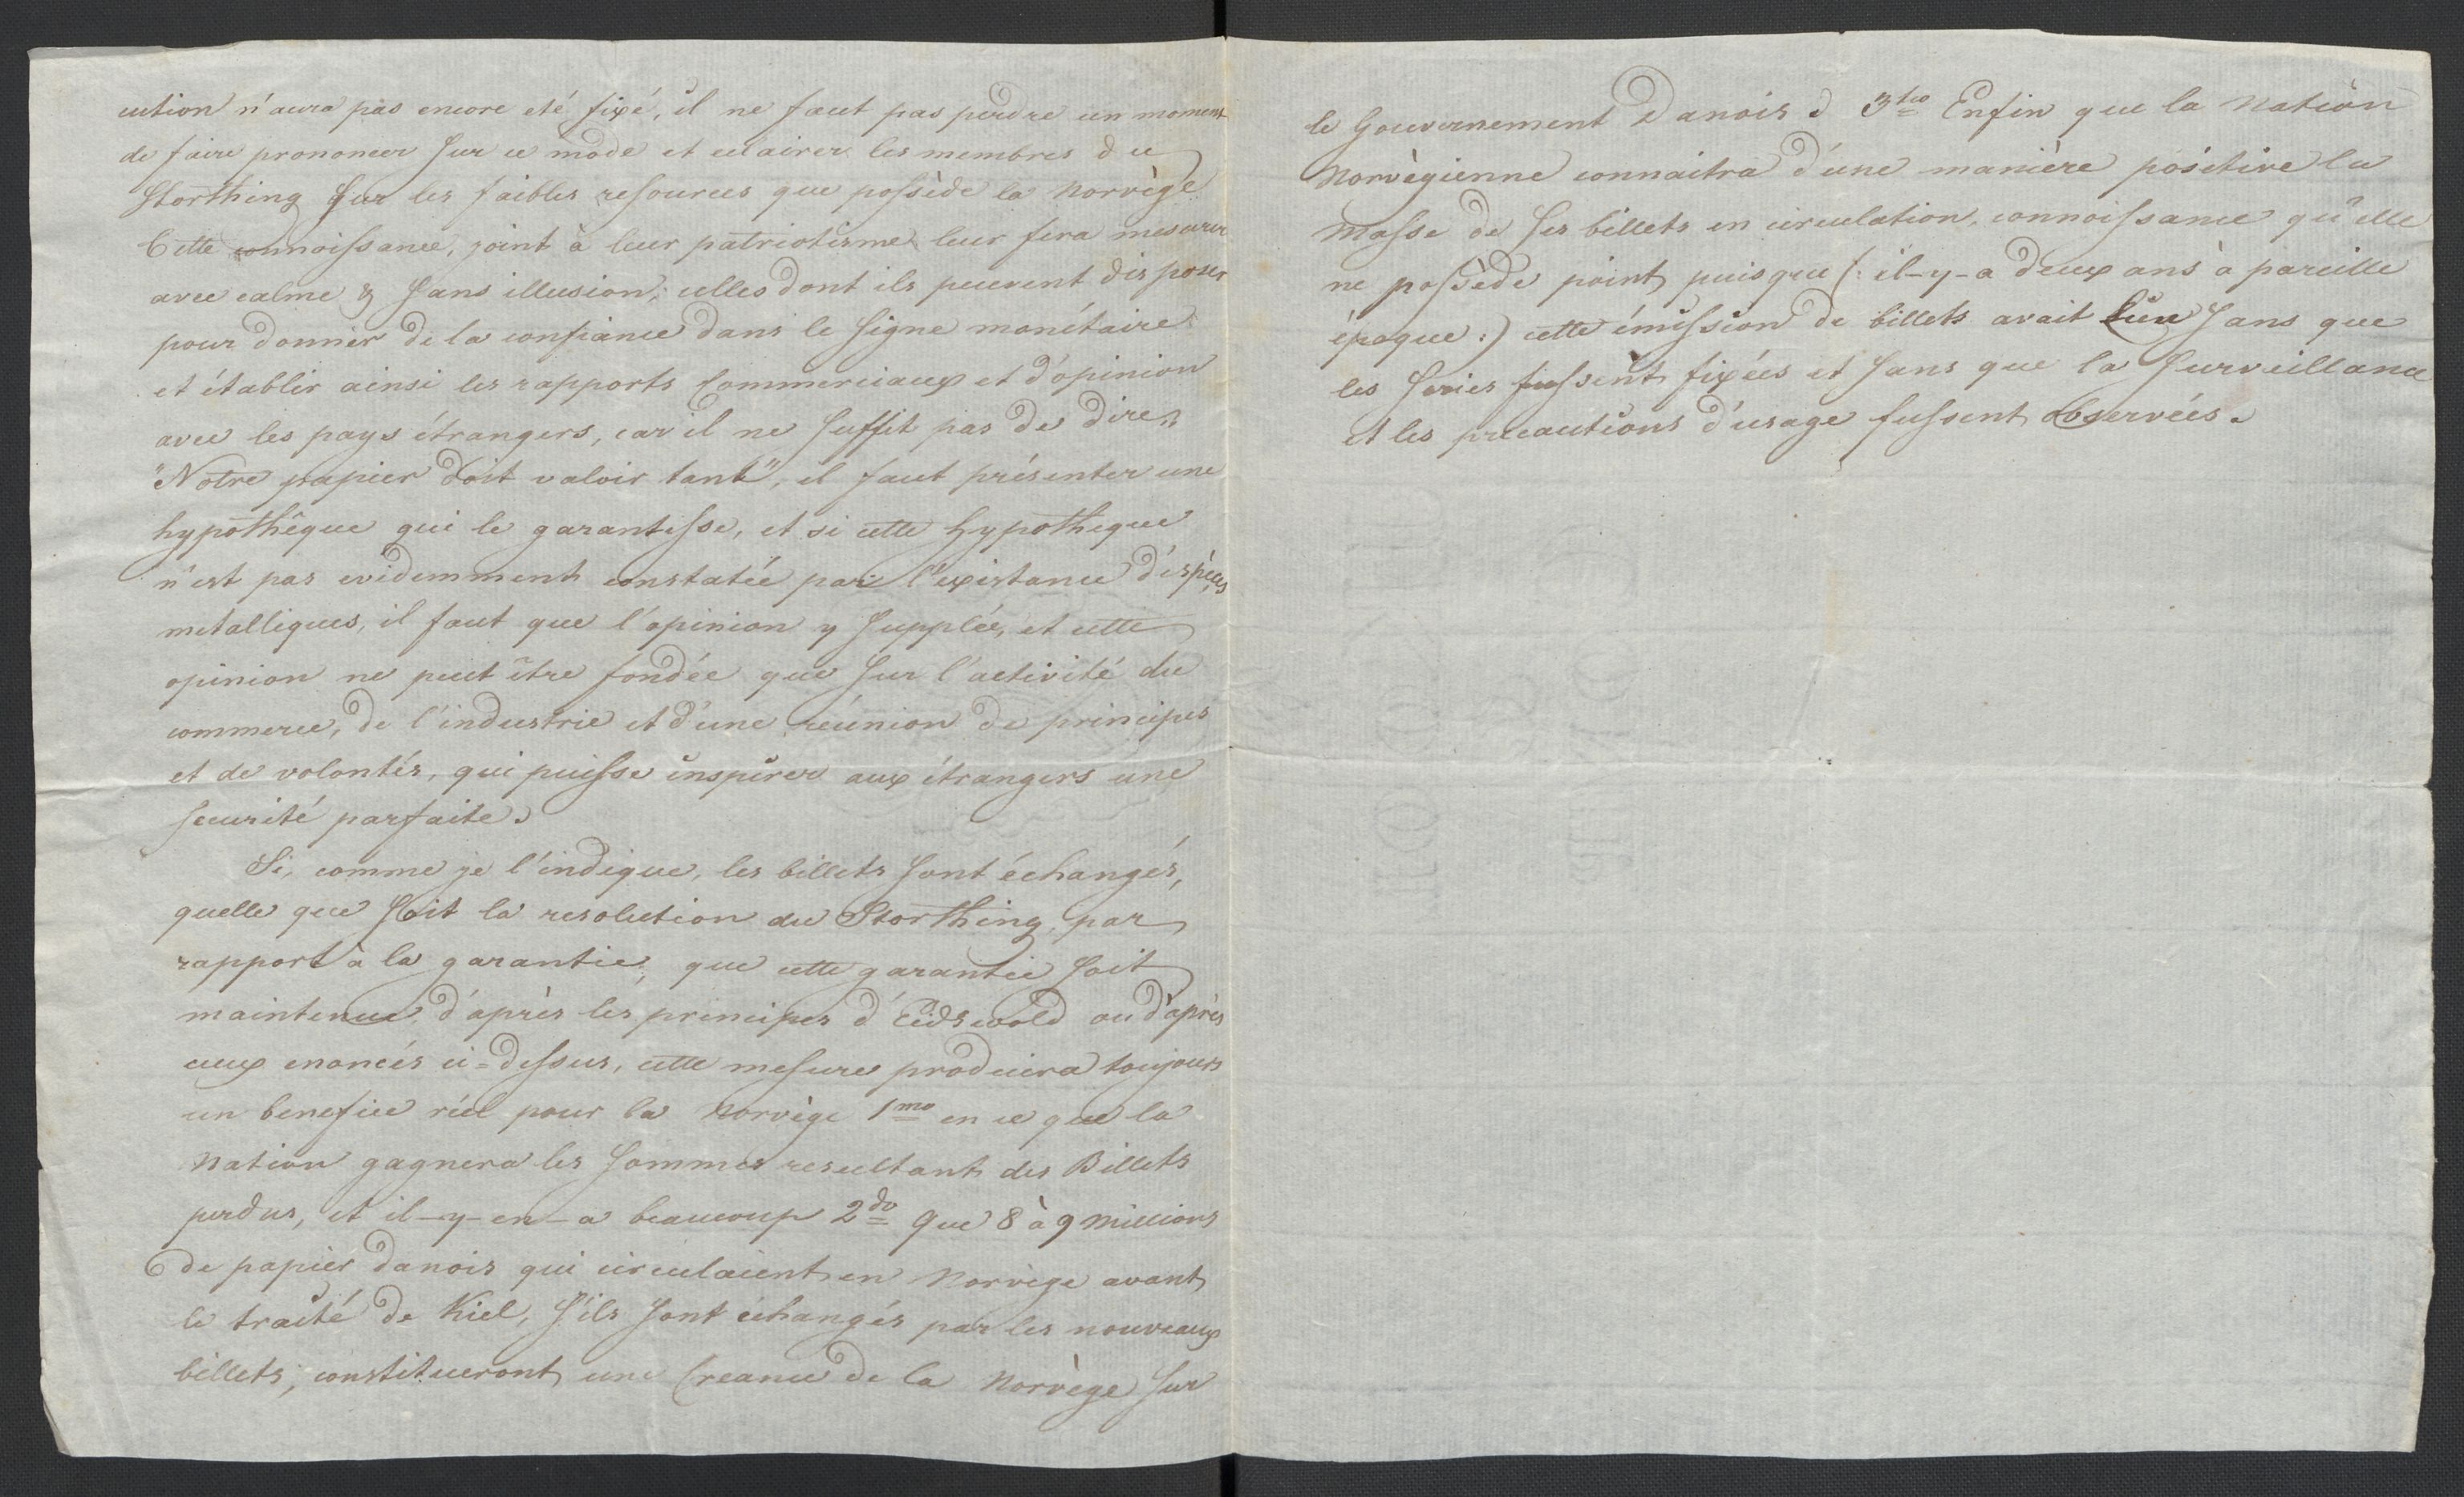 cution n'aura pas encore eté fixé, il ne faut pas perdre un moment
de faire prononcer sur ce mode et eclairer les membres du
Storthing sur les faibles resources que possède la Norvège
Cette connoissance, joint à leur patriotisme leur fera mesurer
avec calme & sans illusion, celles dont ils peuvent disposer
pour donner de la confiance dans le signe monétaire
et établir ainsi les rapports commerciaux et d'opinion
avec les pays étrangers, car il ne suffit pas de dire„
"Notre papier doit valoir tant", il faut présenter une
hypothêque qui le garantisse, et si cette hypotheque
n'est pas evidemment constatée par l'existance d'espèces
metalliques, il faut que l'opinion y supplée, et cette
opinion ne peut être fondée que sur l'activité du
commerce, de l'industrie et d'une réunion de principes
et de volontés, qui puisse inspirer aux étrangers une
securité parfaite.
Si, comme je l'indique, les billets sont échangés,
quelle que soit la resolution du Storthing par
rapport à la garantie, que cette garantie soit
maintenue d'après les principes d'Eidswold ou d'après
ceux enoncés ci=dessus, cette mesure produira toujours
un benefice réel pour la Norvège 1mo en ce que la
Nation gagnera les sommes resultant des Billets
perdus, et il-y-en-a beaucoup 2do que 8 à 9 millions
de papier danois qui circulaient en Norvège avant
le traité de Kiel, s'ils sont échangés par les nouveaux
billets, constitueront une Creance de la Norvège sur
le Gouvernement Danois & 3tio Enfin que la Nation
Norvègienne connaitra d'une manière positive la
masse de ses billets en circulation, connoissance qu'elle
ne possède point puisque (: il-y-a deux ans à pareille
époque :) cette émission de billets avait lieu sans que
les series fussent fixées et sans que la surveillance
et les precautions d'usage fussent observées.